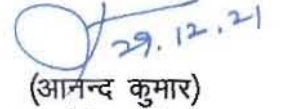 29.12.21
(आनन्द कुमार)